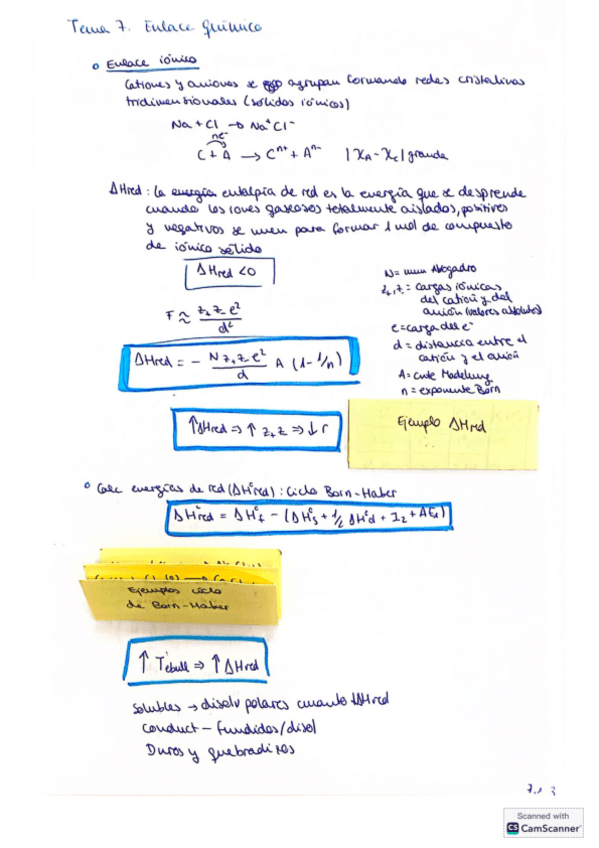 Tema 7. Enlace Químico
o Enlace iónico
Cationes y aniones se agrupan formando redes cristalinas
tridimensionales (sólidos iónicos)
Na + Cl → Na⁺Cl⁻
ne⁻
C + A → Cⁿ⁺ + Aⁿ⁻ |χA - χc| grande
ΔHred: La energía entalpía de red es la energía que se desprende
cuando los iones gaseosos totalmente aislados, positivos
y negativos se unen para formar 1 mol de compuesto
de iónico sólido
ΔHred < 0
N = num Avogadro
z₊, z₋ = cargas iónicas
del catión y del
anión (valores absolutos)
e = carga del e⁻
d = distancia entre el
catión y el anión
A = cnte Madelung
n = exponente Born
F ≈ z₊ z₋ e² / d²
ΔHred = - N z₊ z₋ e² / d A (1 - 1/n)
↑ΔHred ⇒ ↑ z₊ z₋ ⇒ ↓ r
Ejemplo ΔHred
o Calc energías de red (ΔH°red): Ciclo Born-Haber
ΔH°red = ΔH°f - (ΔH°s + 1/2 ΔH°d + I₂ + AE₁)
Ejemplos ciclo
de Born-Haber
↑ Tªebull ⇒ ↑ ΔHred
Solubles → disolv polares cuanto ↓ΔHred
Conduct - fundidos/disol
Duros y quebradizos
Scanned with
CS CamScanner